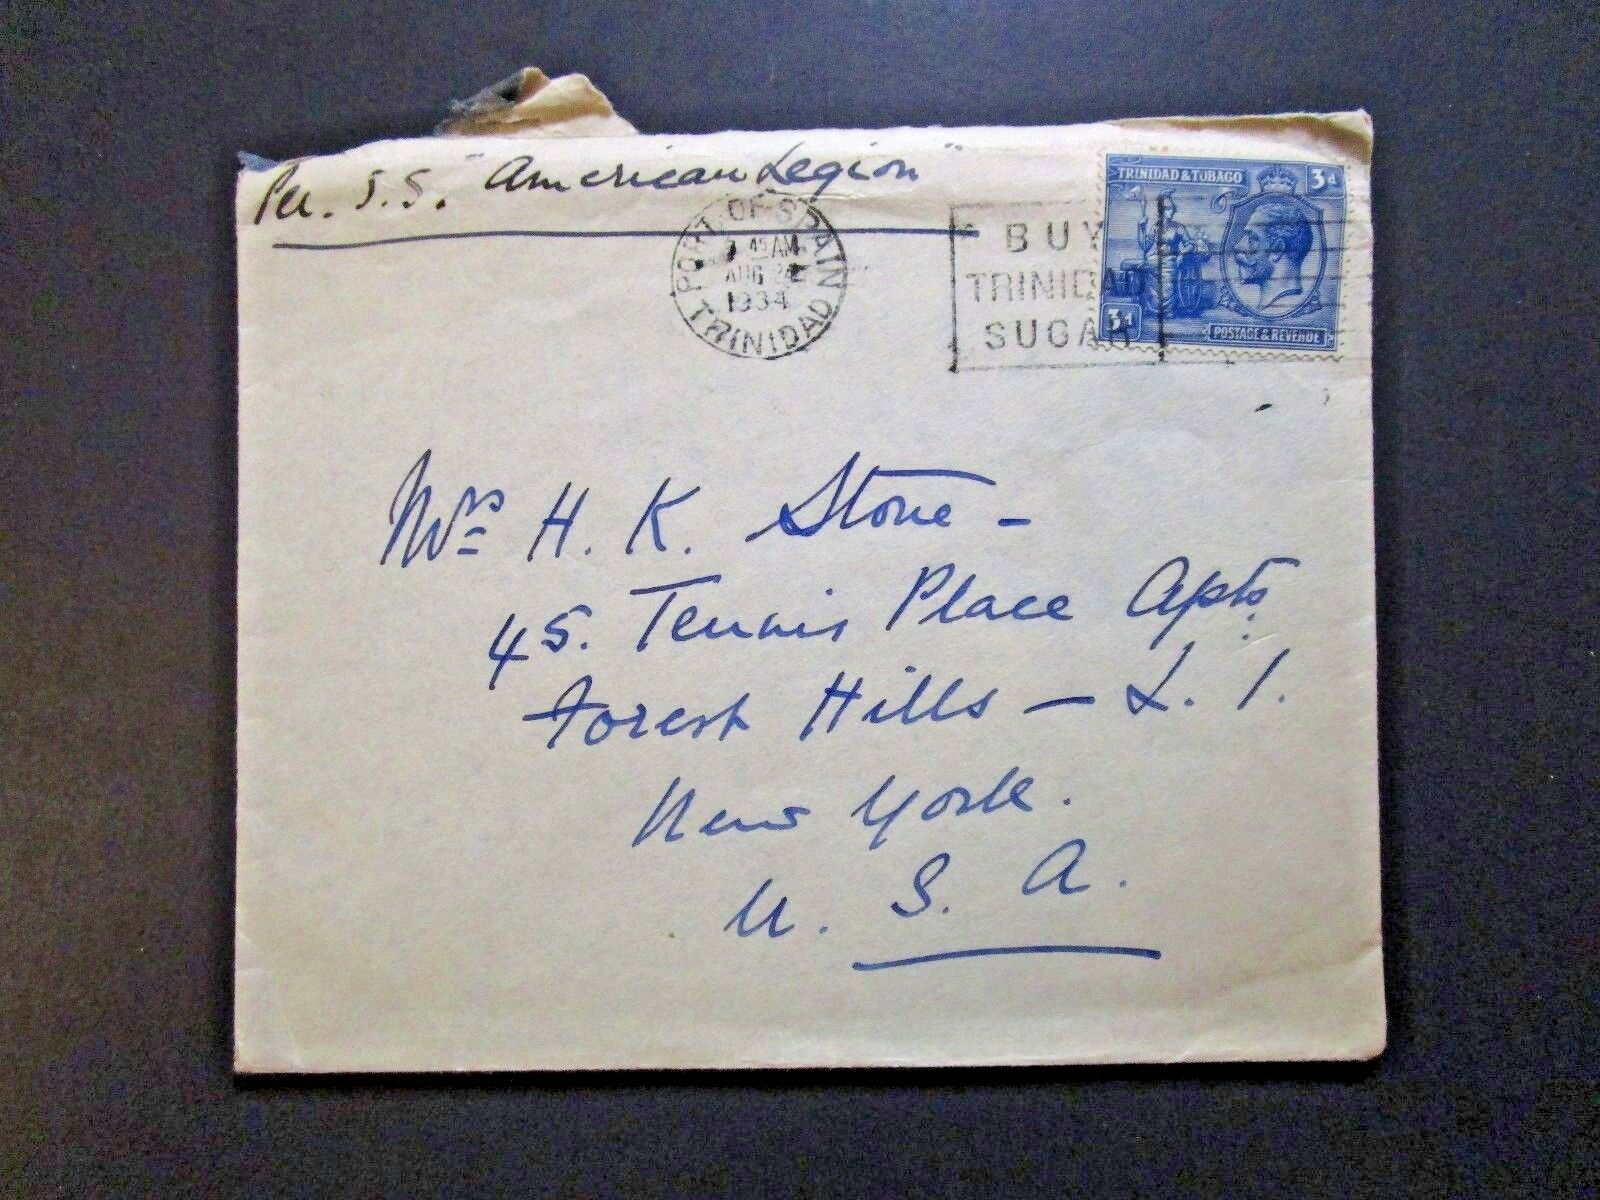 Per. S.S. "American Legion"
PORT OF SPAIN
45 AM
AUG 24
1934
TRINIDAD
BUY
TRINIDAD
SUGAR
TRINIDAD & TOBAGO 3d
3d POSTAGE & REVENUE
Mrs H. K. Stone -
45. Tennis Place Apts.
Forest Hills - L. I.
New York.
U. S. A.